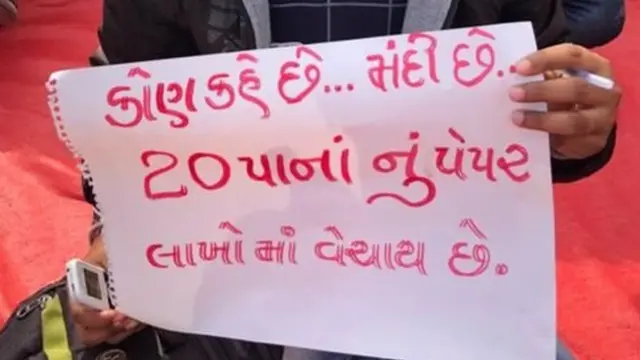 કોણ કહે છે... મંદી છે..
20 પાનાં નું પેપર
લાખો માં વેચાય છે.